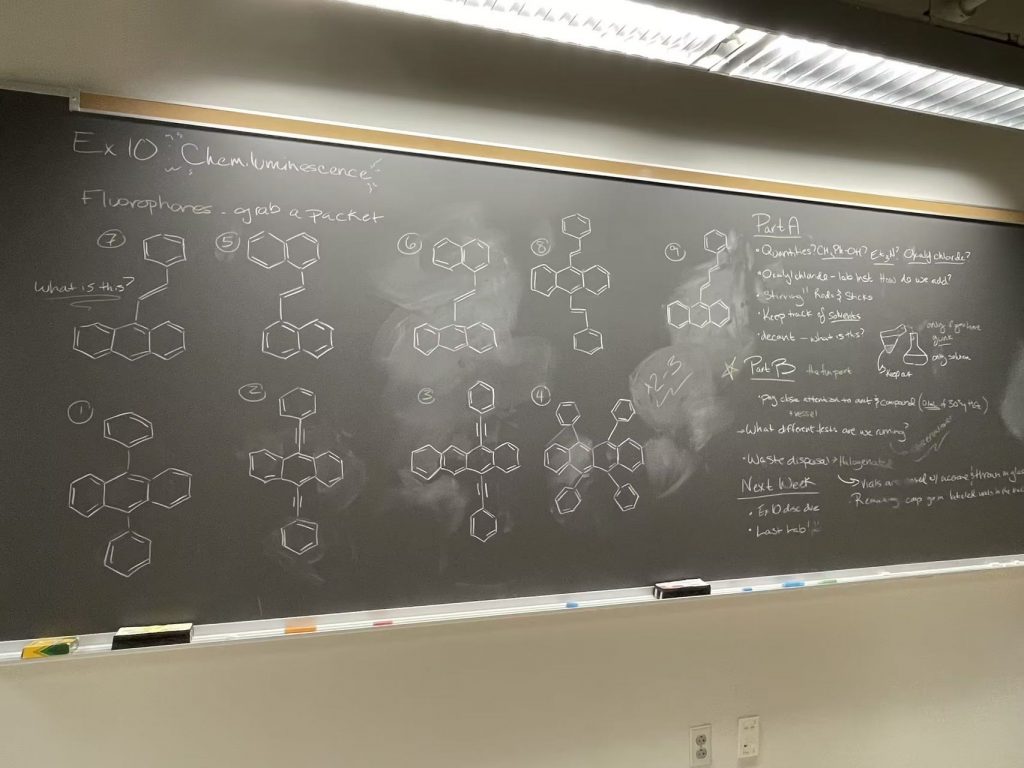 Ex 10 Chemiluminescence
Fluorophores - grab a packet
7
5
6
8
9
What is this?
1
2
3
4
x2-3
Part A
• Quantities? CH3Ph-OH? Et3N? Oxalyl chloride?
• Oxalyl chloride - lab inst How do we add?
• Stirring!! Rods & Sticks
• Keep track of solvents
• decant - what is this?
only if you have
gunk
only solven
Keep at
Part B the fun part
• Pay close attention to amt & compound ( of 30% H2O2)
& vessel
→ What different tests are we running?
• Waste disposal → Halogenated
→ Vials are w/ acetone & thrown in glass
Remaining cmp go in labeled vials in the
Next Week
• Ex 10 disc due
• Last lab!!